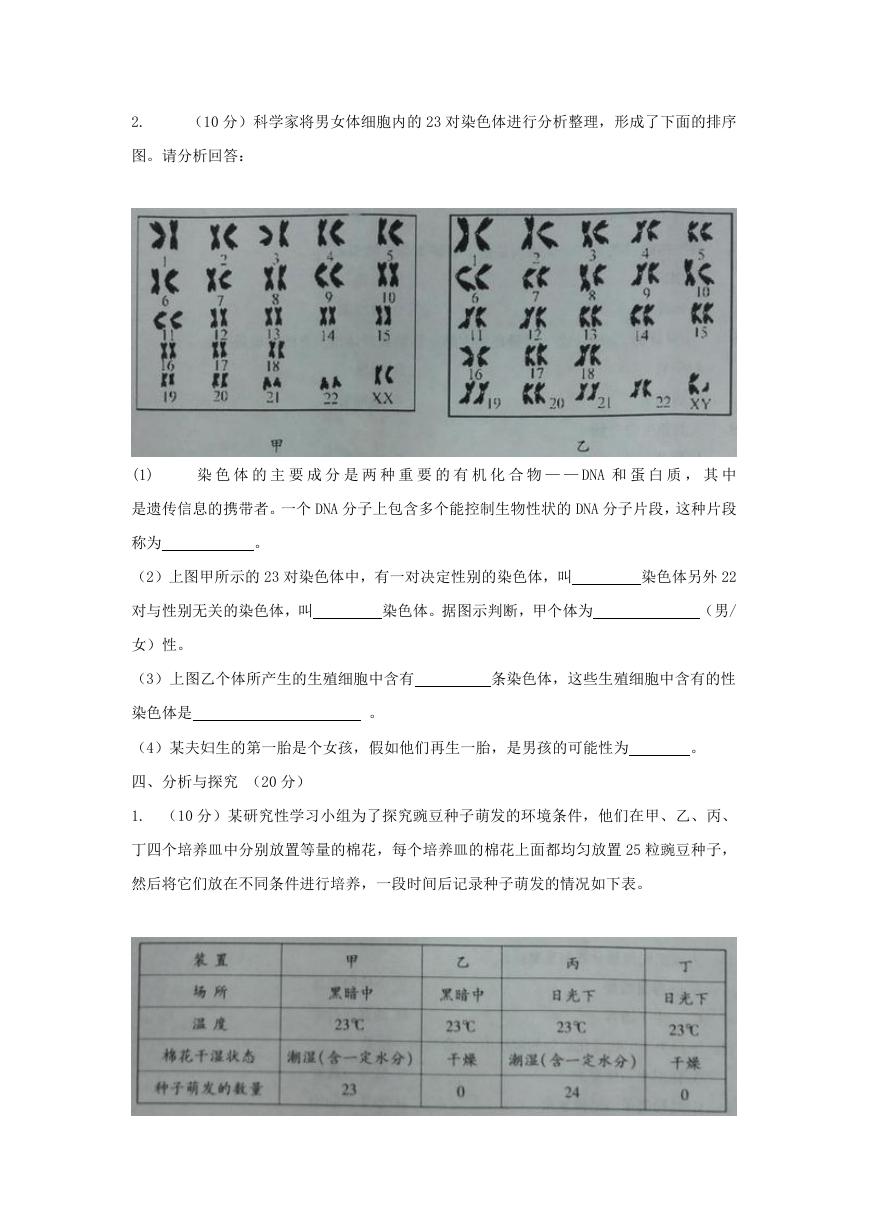 2. （10 分）科学家将男女体细胞内的 23 对染色体进行分析整理，形成了下面的排序
图。请分析回答：
1 2 3 4 5
6 7 8 9 10
11 12 13 14 15
16 17 18
19 20 21 22 XX
甲
1 2 3 4 5
6 7 8 9 10
11 12 13 14 15
16 17 18
19 20 21 22 XY
乙
(1) 染色体的主要成分是两种重要的有机化合物——DNA 和蛋白质，其中
是遗传信息的携带者。一个 DNA 分子上包含多个能控制生物性状的 DNA 分子片段，这种片段
称为____________。
（2）上图甲所示的 23 对染色体中，有一对决定性别的染色体，叫_________染色体另外 22
对与性别无关的染色体，叫_________染色体。据图示判断，甲个体为______________（男/
女）性。
（3）上图乙个体所产生的生殖细胞中含有__________条染色体，这些生殖细胞中含有的性
染色体是______________________ 。
（4）某夫妇生的第一胎是个女孩，假如他们再生一胎，是男孩的可能性为________。
四、分析与探究 （20 分）
1. （10 分）某研究性学习小组为了探究豌豆种子萌发的环境条件，他们在甲、乙、丙、
丁四个培养皿中分别放置等量的棉花，每个培养皿的棉花上面都均匀放置 25 粒豌豆种子，
然后将它们放在不同条件进行培养，一段时间后记录种子萌发的情况如下表。
装置 甲 乙 丙 丁
场所 黑暗中 黑暗中 日光下 日光下
温度 23℃ 23℃ 23℃ 23℃
棉花干湿状态 潮湿(含一定水分) 干燥 潮湿(含一定水分) 干燥
种子萌发的数量 23 0 24 0